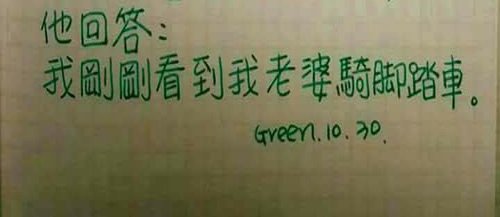 他回答:
我剛剛看到我老婆騎腳踏車。
Green.10.30.